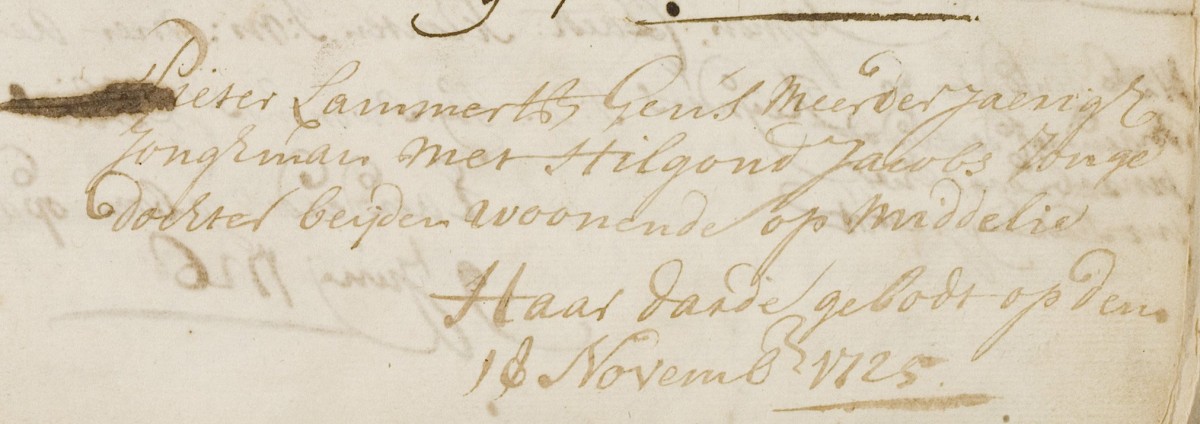 Pieter Lammerts Gens Meerderjaerigh
Jongkman met Hilgond Jacobs Jonge
dochter beijden woonende op Middelie
Haar darde gebodt op den
18 Novemb 1725